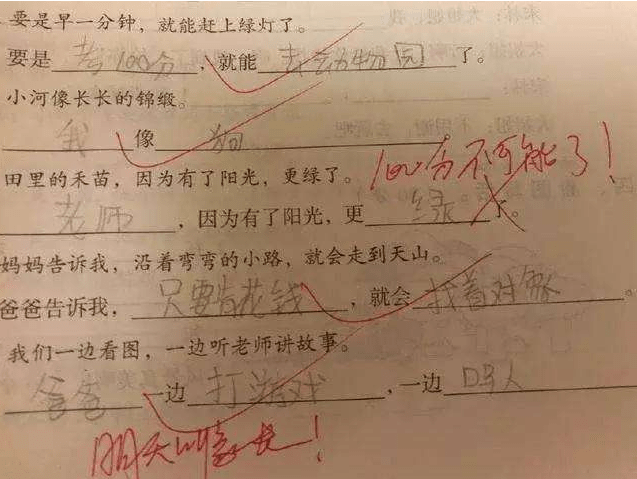 要是早一分钟，就能赶上绿灯了。
要是考100分，就能去动物园了。
小河像长长的锦缎。
我像狗
田里的禾苗，因为有了阳光，更绿了。
100分不可能了！
老师，因为有了阳光，更绿了。
妈妈告诉我，沿着弯弯的小路，就会走到天山。
爸爸告诉我，只要肯花钱，就会找着对象。
我们一边看图，一边听老师讲故事。
爸爸一边打游戏，一边骂人
明天叫家长！